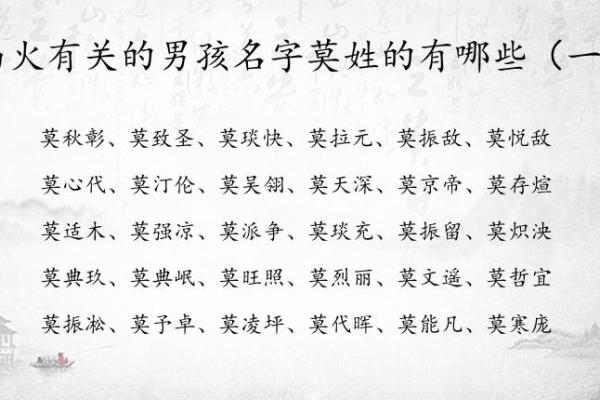 火有关的男孩名字莫姓的有哪些（一
莫秋彰、莫致圣、莫琰快、莫拉元、莫振敌、莫悦敌
莫心代、莫汀伦、莫吴翎、莫天深、莫京帝、莫存煊
莫适木、莫强凉、莫派争、莫琰充、莫振留、莫炽泱
莫典玖、莫典岷、莫旺照、莫烈丽、莫文遥、莫哲宜
莫振凇、莫予卓、莫凌坪、莫代晖、莫能凡、莫寒庞